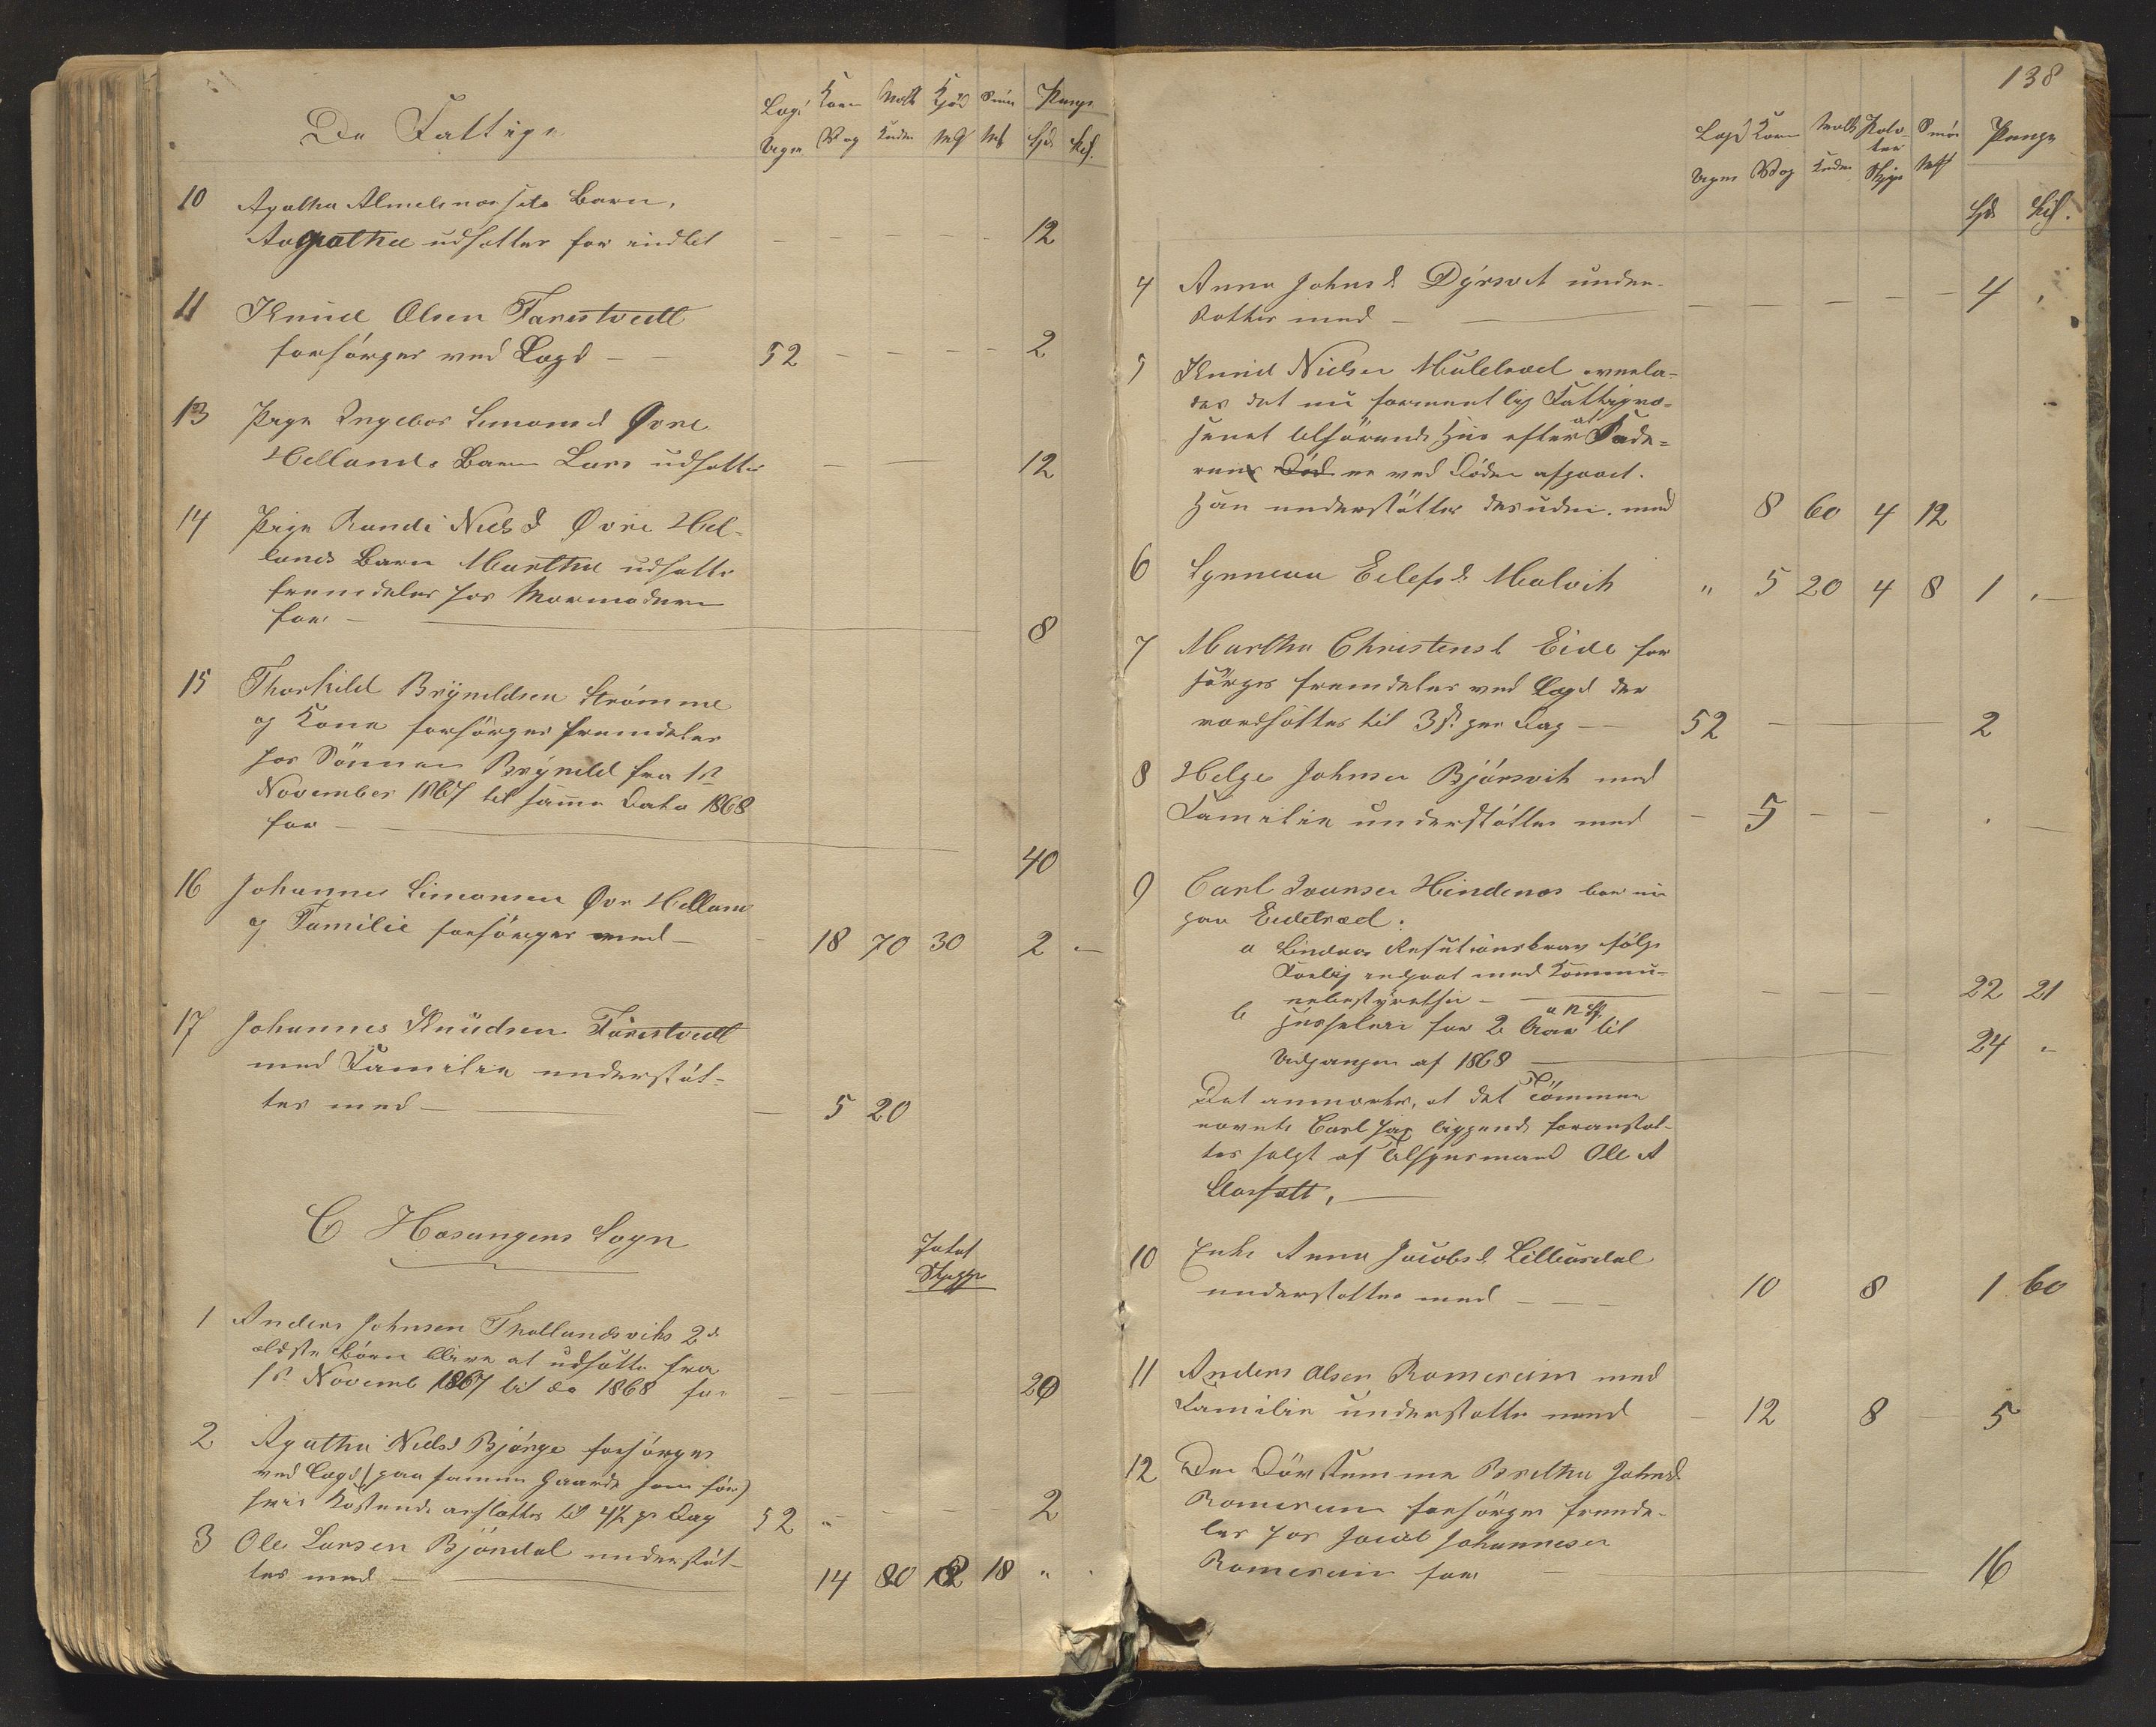 De Fattige
Lægd Korn Melk Kjød Smør Penge
Uger Vog Kander
10 Agatha Almelines Barn,
Aagathe udsættes for indtil – – – – – 12
11 Knud Olsen Farestvedt
forsørges ved Lægd – – 52 – – – – 2
13 Pige Ingebor Simonsd Øvre
Hellands Barn Lars udsættes – – 12
14 Pige Randi Nielsd Øvre Hel-
lands Barn Martha udsættes
fremdeles hos Mormoderen
for – 8
15 Thorkild Brynildsen Strømme
og Kone forsørges fremdeles
hos Sønnen Brynild fra 1st
November 1867 til samme Dato 1868
for – 40
16 Johannes Simonsen Øvr Helland
og Familie forsørges med – 18 70 30 2 –
17 Johannes Knudsen Farestvedt
med Familie understøt-
tes med – – 5 20
C Hosangers Sogn
1 Anders Johnsen Thollandsviks 2de
ældste Børn blive at udsætte fra
1st Novemb 1867 til do 1868 for – – – 20
2 Agatha Nielsd Bjørge forsørges
ved Lægd (paa samme Gaarde som før)
hvis Kostende ansættes til 4 pr Dag 52 „ – – – 2
3 Ole Larsen Bjøndal understøt-
tes med – 14 80 12 18 „
138
Lægd Korn Melk Poto- Smør Penge
teter
Uger Vog Kander
4 Anna Johnsd Dyrsvet under-
støttes med – – – – – – 4 „
5 Knud Nielsen Muldræd overla-
des det nu formentlig Fattigvæ-
senet tilhørende Hus efter at Fade-
ren Død er ved Døden afgaaet.
Han understøttes desuden med 8 60 4 12
6 Synneva Eilefsd Malvik „ 5 20 4 8 1 „–
7 Martha Christensd Eide for
sørges fremdeles ved Lægd der
værdsættes til 3 s. per Dag – 52 – – 2
8 Helge Johnsen Bjørsvik med
Familie understøttes med – 5 – – . –
9 Carl Iversen Hindenes bor nu
paa Eidetræd.
a Lindaas Refusionskrav følge
Forlig indgaaet med Kommu-
nebestyrelsen – – – – 22 21
b Husleien for 2 Aar a 12 til
Udgangen af 1868 – 24 „
Det anmærkes, at det Tømmer
nævnte Carl har liggende foranstal-
tes solgt af Tilsynsmand Ole A
Aarsæth. –
10 Enke Anna Jacobsd Lilleurdal
understøttes med – – – 10 8 1 60
11 Anders Olsen Romereim med
Familie understøttes med – 12 8 – 5
12 Den Døvstumme Brithe Johnsd
Romereim forsørges fremde-
les hos Jacob Johannesen
Romereim for – 16